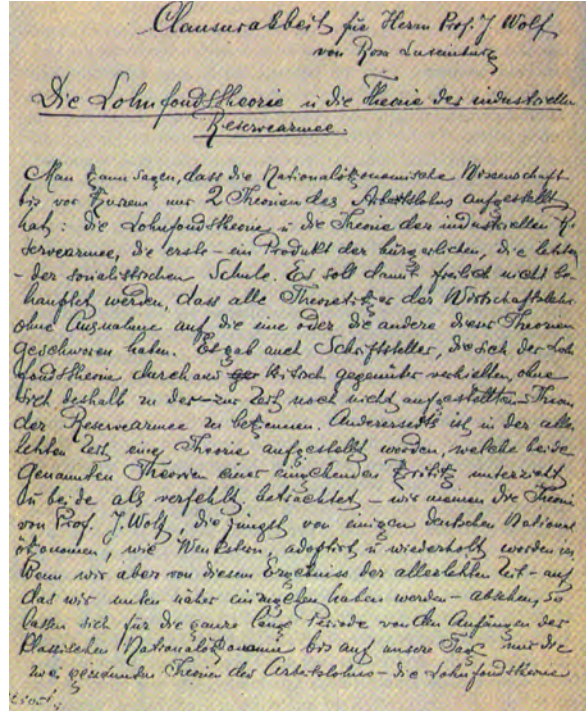 Clausurarbeit für Herrn Prof. J. Wolf
von Rosa Luxemburg
Die Lohnfondstheorie u die Theorie der industriellen
Reservearmee.
Man kann sagen, dass die Nationalökonomische Wissenschaft
bis vor Kurzem nur 2 Theorien des Arbeitslohns aufgestellt
hat: die Lohnfondstheorie u die Theorie der industriellen Re-
servearmee, die erste - ein Produkt der bürgerlichen, die letzte
- der sozialistischen Schule. Es soll damit freilich nicht be-
hauptet werden, dass alle Theoretiker der Wirtschaftslehre
ohne Ausnahme auf die eine oder die andere dieser Theorien
geschworen haben. Es gab auch Schriftsteller, die sich der Lohn-
fondstheorie durchaus kritisch gegenüber verhielten, ohne
sich deshalb zu der - zur Zeit noch nicht aufgestellten - Theorie
der Reservearmee zu bekennen. Andererseits ist in der aller-
letzten Zeit eine Theorie aufgestellt worden, welche beide
genannten Theorien einer eingehenden Kritik unterzieht
u beide als verfehlt betrachtet - wir meinen die Theorie
von Prof. J. Wolf, die jüngst von einigen deutschen National-
ökonomen, wie Wenckstern, adoptirt u wiederholt worden ist.
Wenn wir aber von diesem Ergebniss der allerletzten Zeit - auf
das wir unten näher einzugehen haben werden - absehen, so
lassen sich für die ganze lange Periode von den Anfängen der
klassischen Nationalökonomie bis auf unsere Tage nur die
zwei genannten Theorien des Arbeitslohns - die Lohnfondstheorie